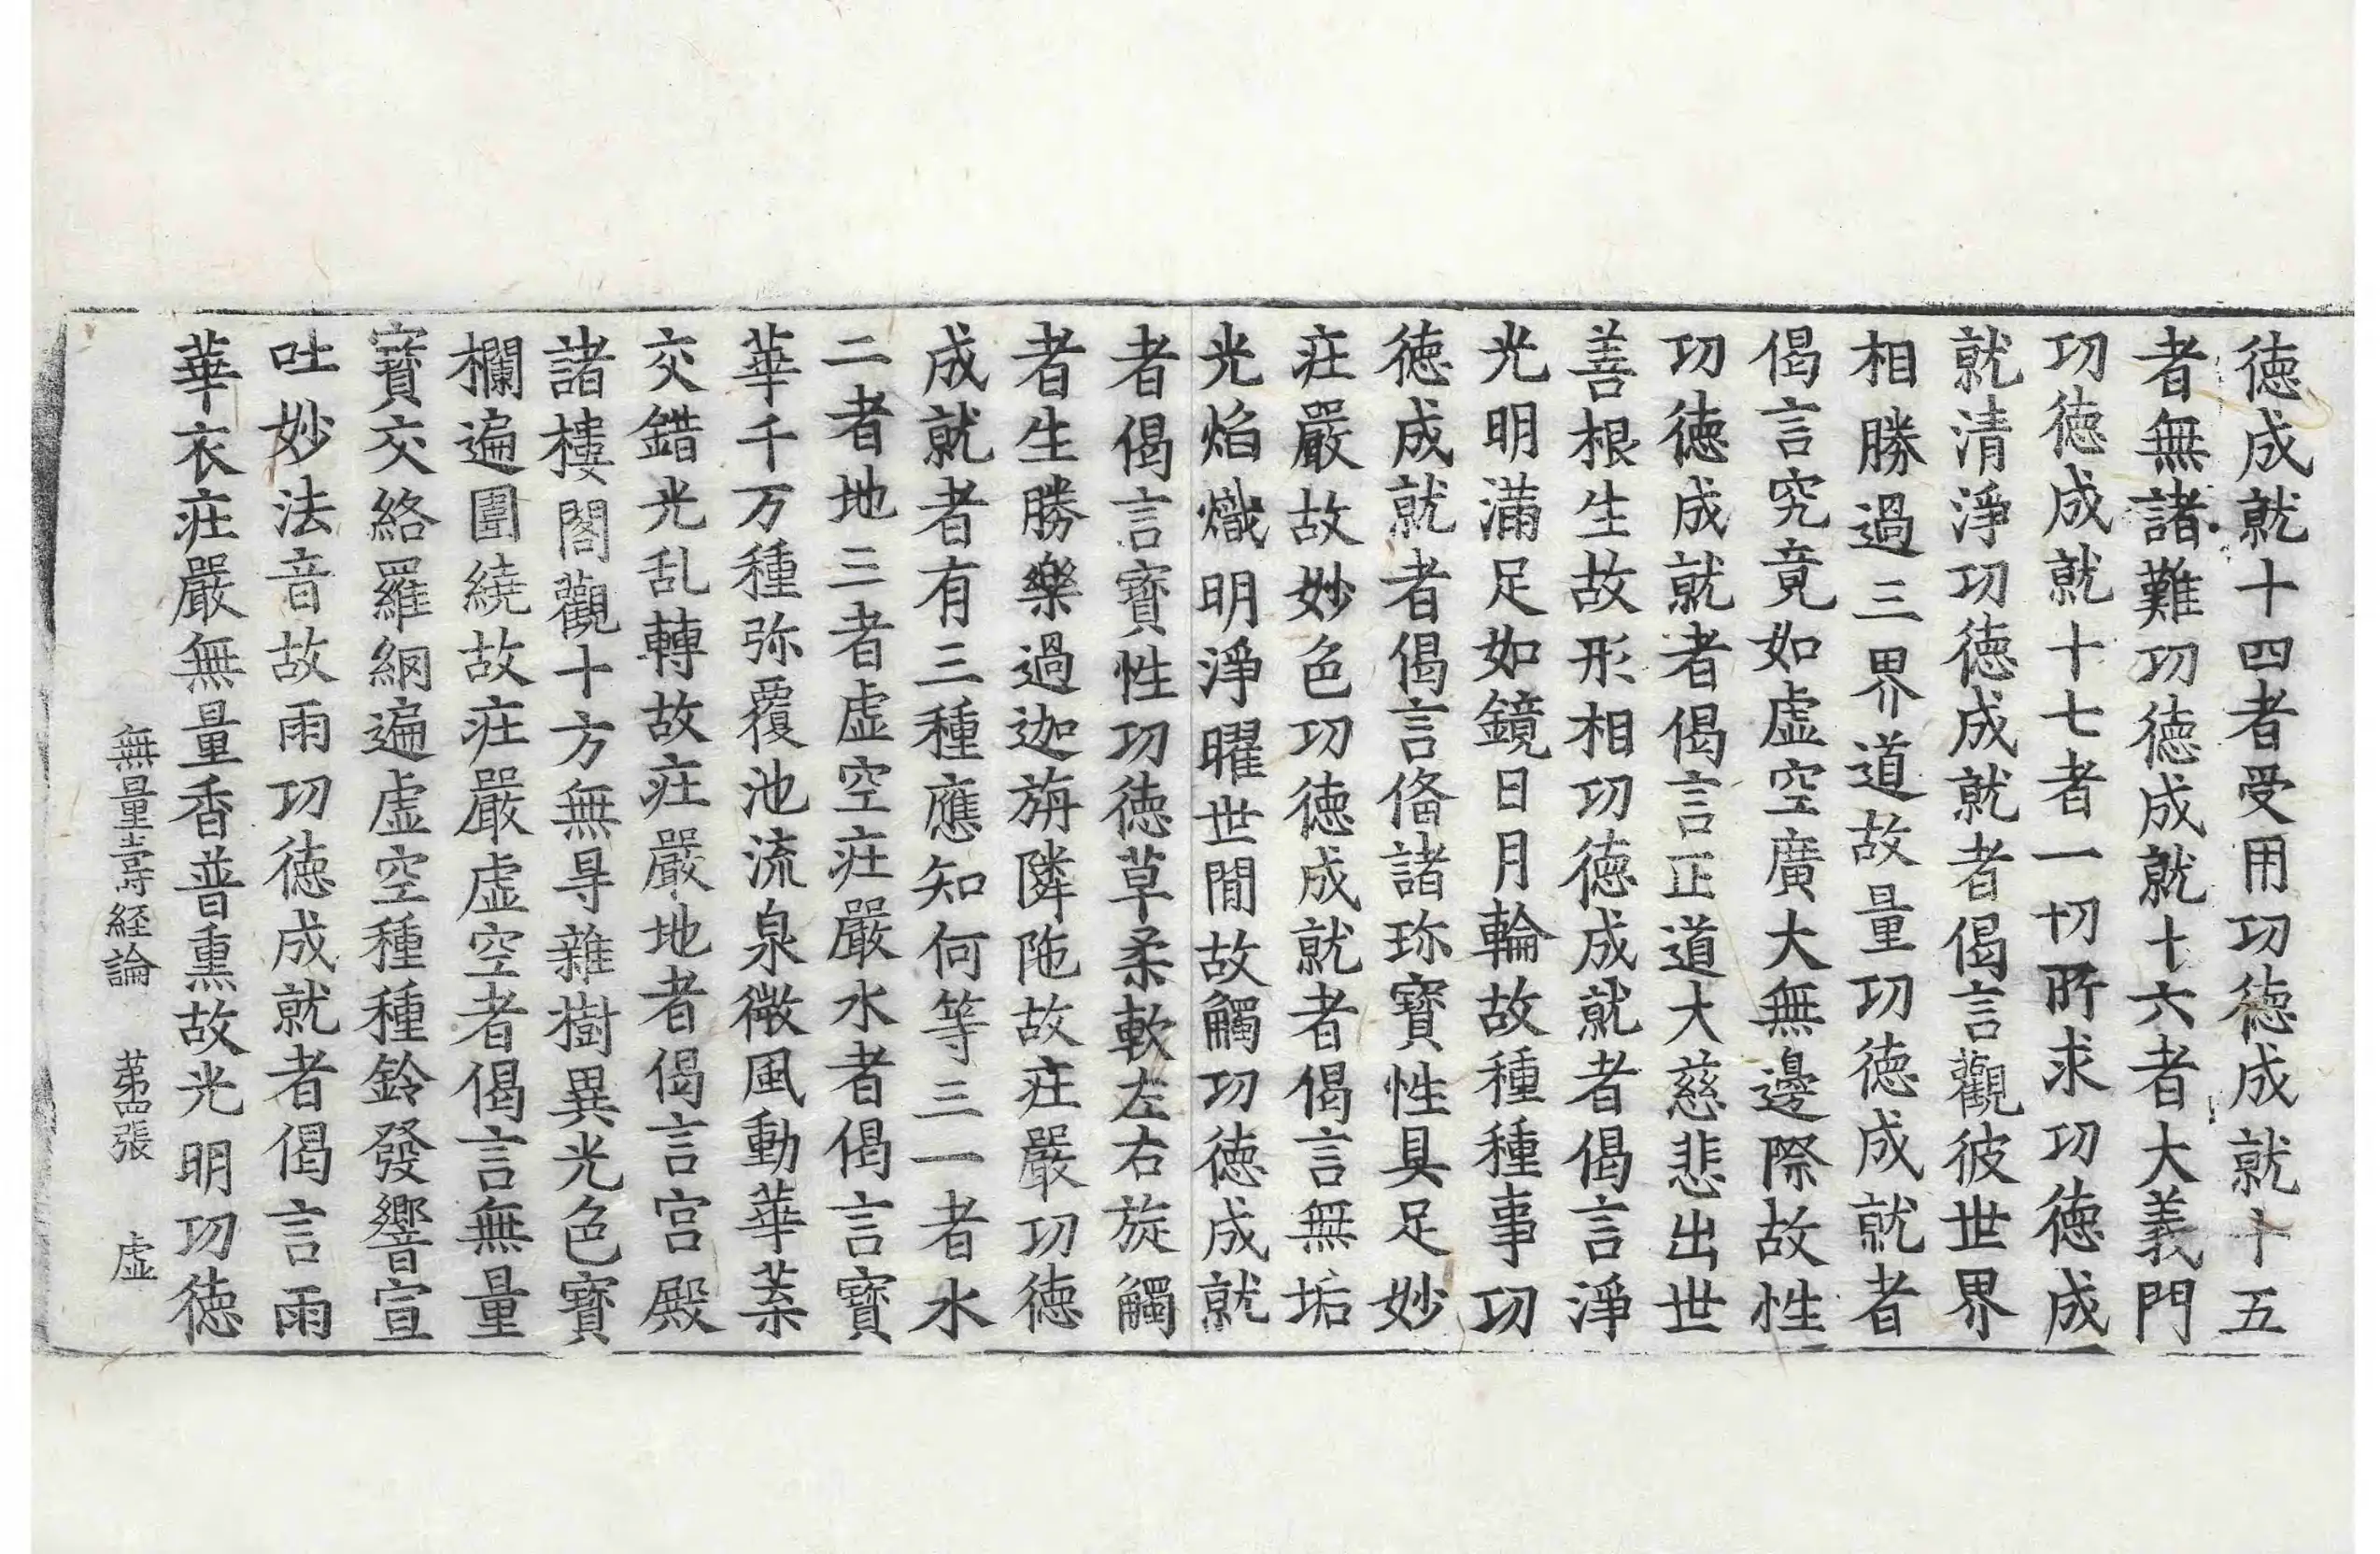 徳成就十四者受用功徳成就十五
者無諸難功徳成就十六者大義門
功徳成就十七者一切所求功徳成
就清淨功徳成就者偈言觀彼世界
相勝過三界道故量功徳成就者
偈言究竟如虛空廣大無邊際故性
功徳成就者偈言正道大慈悲出世
善根生故形相功徳成就者偈言淨
光明滿足如鏡日月輪故種種事功
徳成就者偈言俻諸珎寶性具足妙
莊嚴故妙色功徳成就者偈言無垢
光焰熾明淨曜世間故觸功徳成就
者偈言寶性功徳草柔軟左右旋觸
者生勝樂過迦旃隣陁故莊嚴功徳
成就者有三種應知何等三一者水
二者地三者虛空莊嚴水者偈言寶
華千万種弥覆池流泉微風動華葉
交錯光乱轉故莊嚴地者偈言宮殿
諸樓閣觀十方無㝵雜樹異光色寶
欄遍圍繞故莊嚴虛空者偈言無量
寶交絡羅網遍虛空種種鈴發響宣
吐妙法音故雨功徳成就者偈言雨
華衣莊嚴無量香普熏故光明功徳
無量壽経論 苐四張 虛